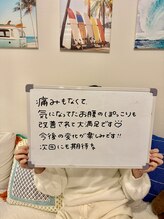 痛みもなくて、
気になってたお腹のぽっこりも
改善されて大満足です
今後の変化が楽しみです!!
次回にも期待